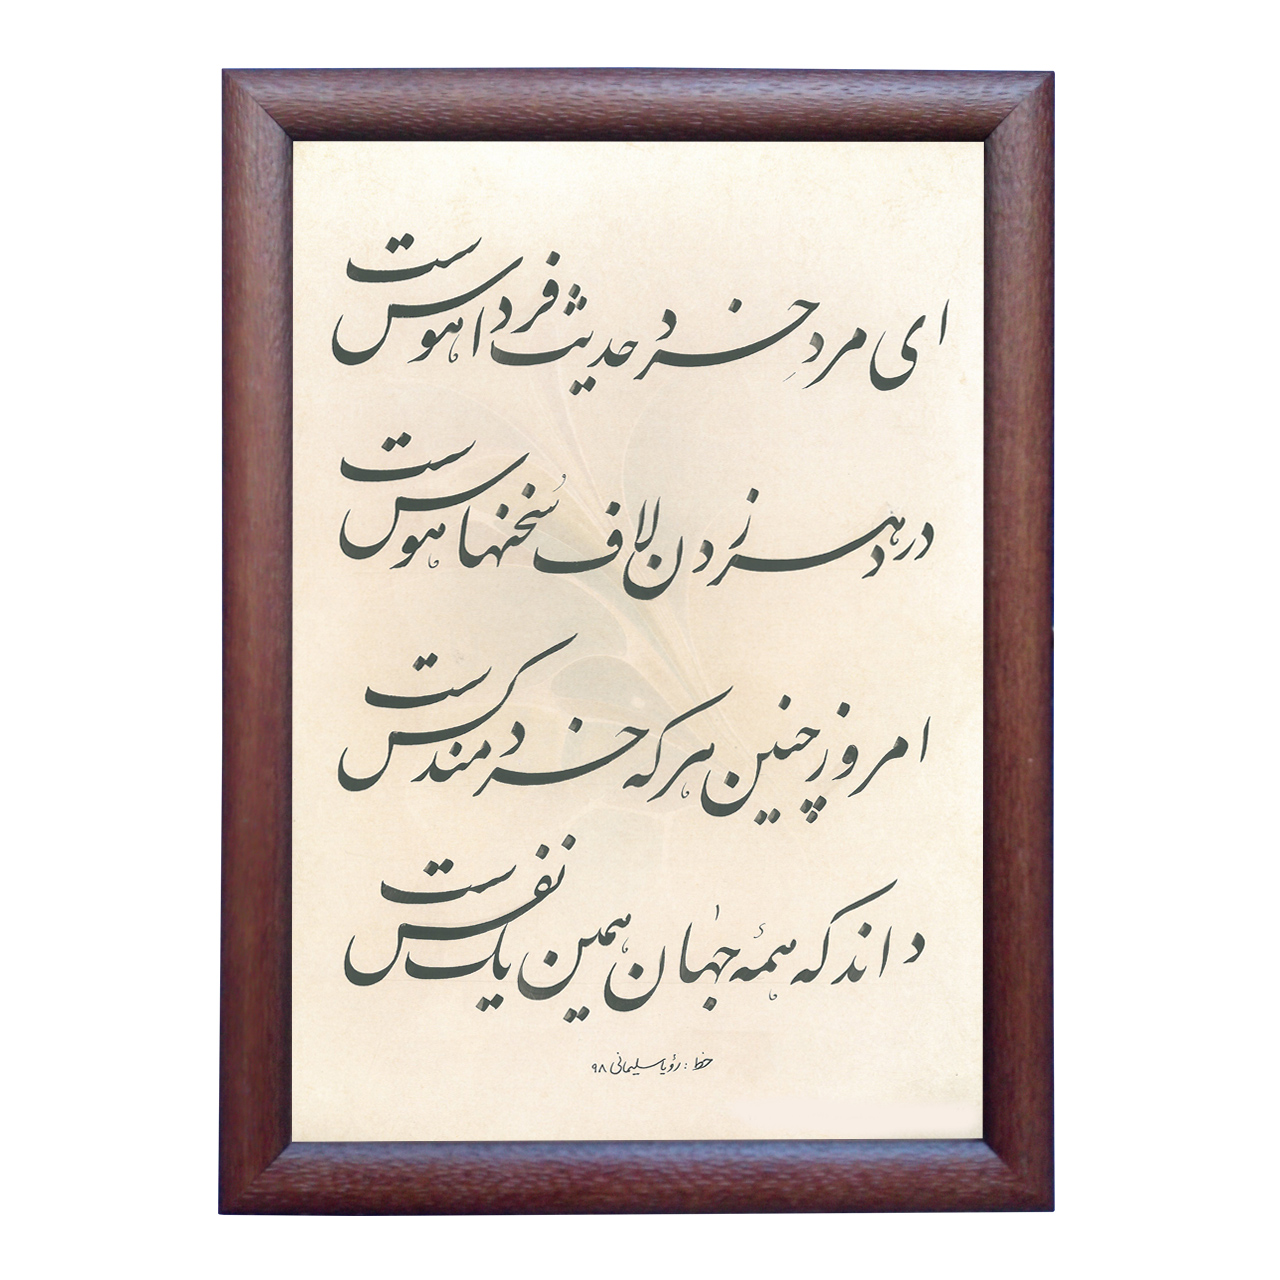 ای مردِ خرد حدیث فردا هوس ست
در دهر زدن لاف سُخنها هوس ست
امروز چنین هر که خردمند کس ست
داند که همهٔ جهان همین یک نفس ست
خط : رؤیا سلیمانی ۹۸